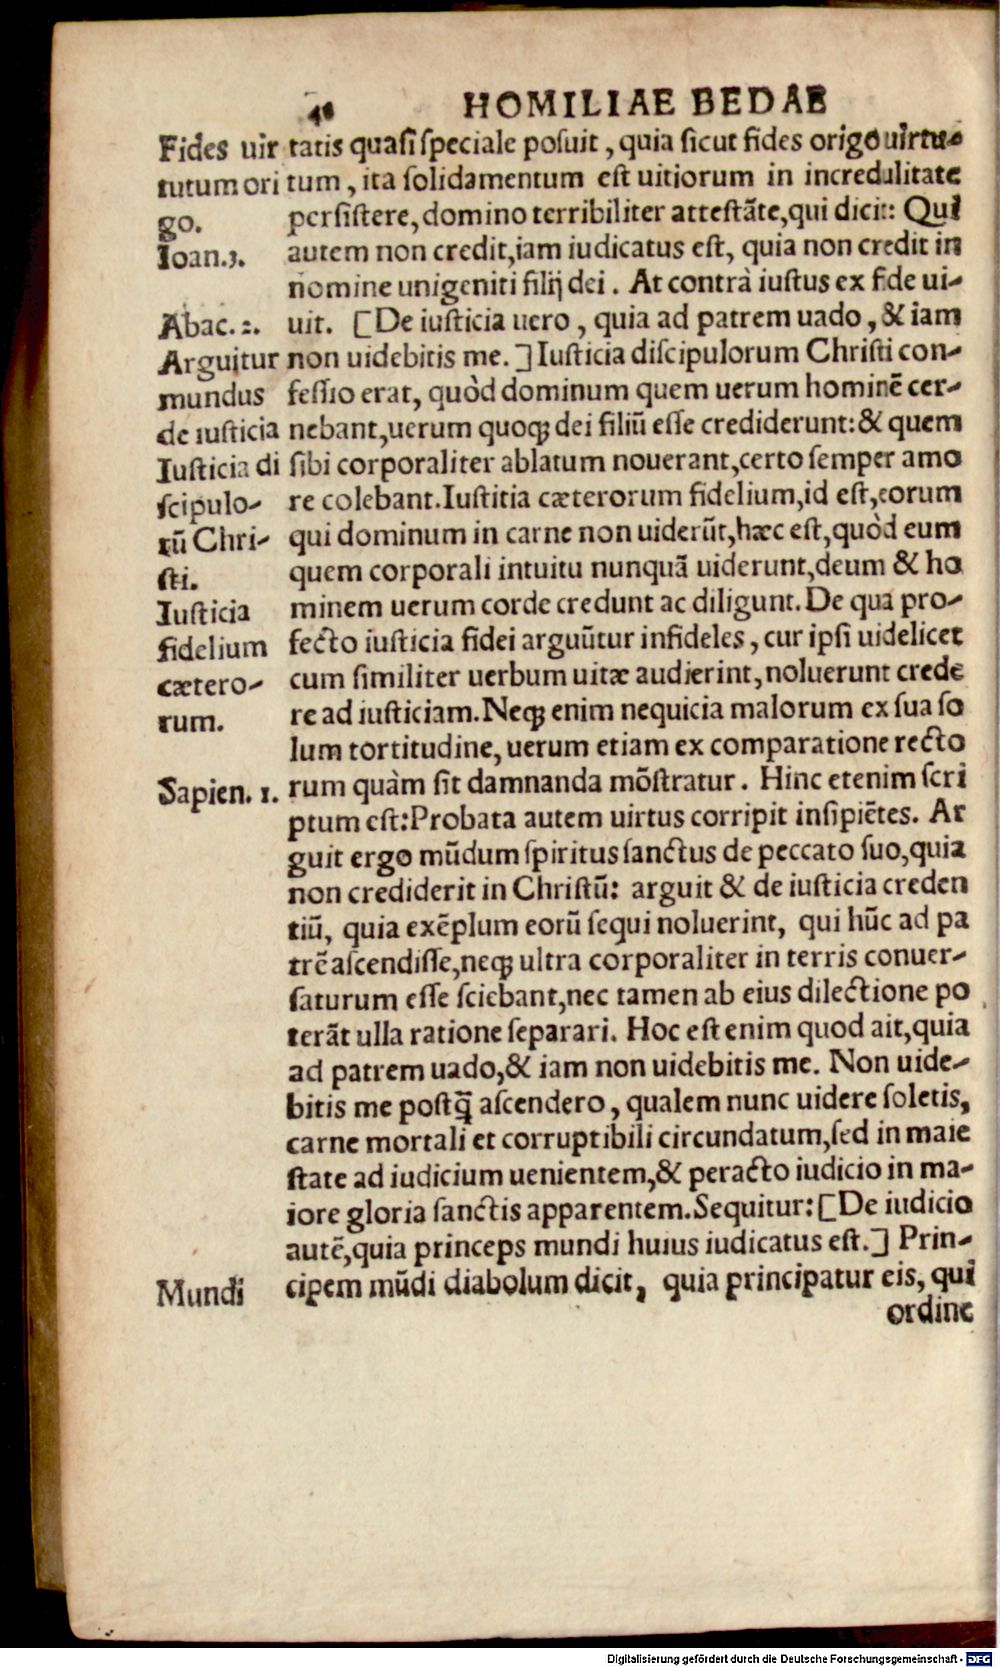 48 HOMILIAE BEDAE
Fides uir
tutum ori
go.
Ioan.3.
Abac. 2.
Arguitur
mundus
de iusticia
Iusticia di
scipulo-
rũ Chri-
sti.
Iusticia
fidelium
cætero-
rum.
Sapien. 1.
Mundi
tatis quasi speciale posuit, quia sicut fides origo uirtu-
tum, ita solidamentum est uitiorum in incredulitate
persistere, domino terribiliter attestãte, qui dicit: Qui
autem non credit, iam iudicatus est, quia non credit in
nomine unigeniti filij dei. At contrà iustus ex fide ui-
uit. [De iusticia uero, quia ad patrem uado, & iam
non uidebitis me.] Iusticia discipulorum Christi con-
fessio erat, quòd dominum quem uerum hominẽ cer-
nebant, uerum quoq; dei filiũ esse crediderunt: & quem
sibi corporaliter ablatum nouerant, certo semper amo
re colebant. Iustitia cæterorum fidelium, id est, eorum
qui dominum in carne non uiderũt, hæc est, quòd eum
quem corporali intuitu nunquã uiderunt, deum & ho
minem uerum corde credunt ac diligunt. De qua pro-
fecto iusticia fidei arguũtur infideles, cur ipsi uidelicet
cum similiter uerbum uitæ audierint, noluerunt crede
re ad iusticiam. Neq; enim nequicia malorum ex sua so
lum tortitudine, uerum etiam ex comparatione recto
rum quàm sit damnanda mõstratur. Hinc etenim scri
ptum est: Probata autem uirtus corripit insipiẽtes. Ar
guit ergo mũdum spiritus sanctus de peccato suo, quia
non crediderit in Christũ: arguit & de iusticia creden
tiũ, quia exẽplum eorũ sequi noluerint, qui hũc ad pa
trẽ ascendisse, neq; ultra corporaliter in terris conuer-
saturum esse sciebant, nec tamen ab eius dilectione po
terãt ulla ratione separari. Hoc est enim quod ait, quia
ad patrem uado, & iam non uidebitis me. Non uide-
bitis me postq̃ ascendero, qualem nunc uidere soletis,
carne mortali et corruptibili circundatum, sed in maie
state ad iudicium uenientem, & peracto iudicio in ma-
iore gloria sanctis apparentem. Sequitur: [De iudicio
autẽ, quia princeps mundi huius iudicatus est.] Prin-
cipem mũdi diabolum dicit, quia principatur eis, qui
ordine
Digitalisierung gefördert durch die Deutsche Forschungsgemeinschaft - DFG